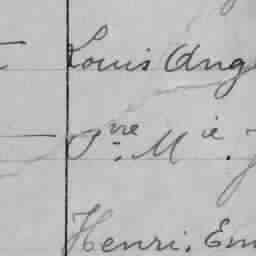 Louis Ang
Pre. Mie. J
Henri. Em